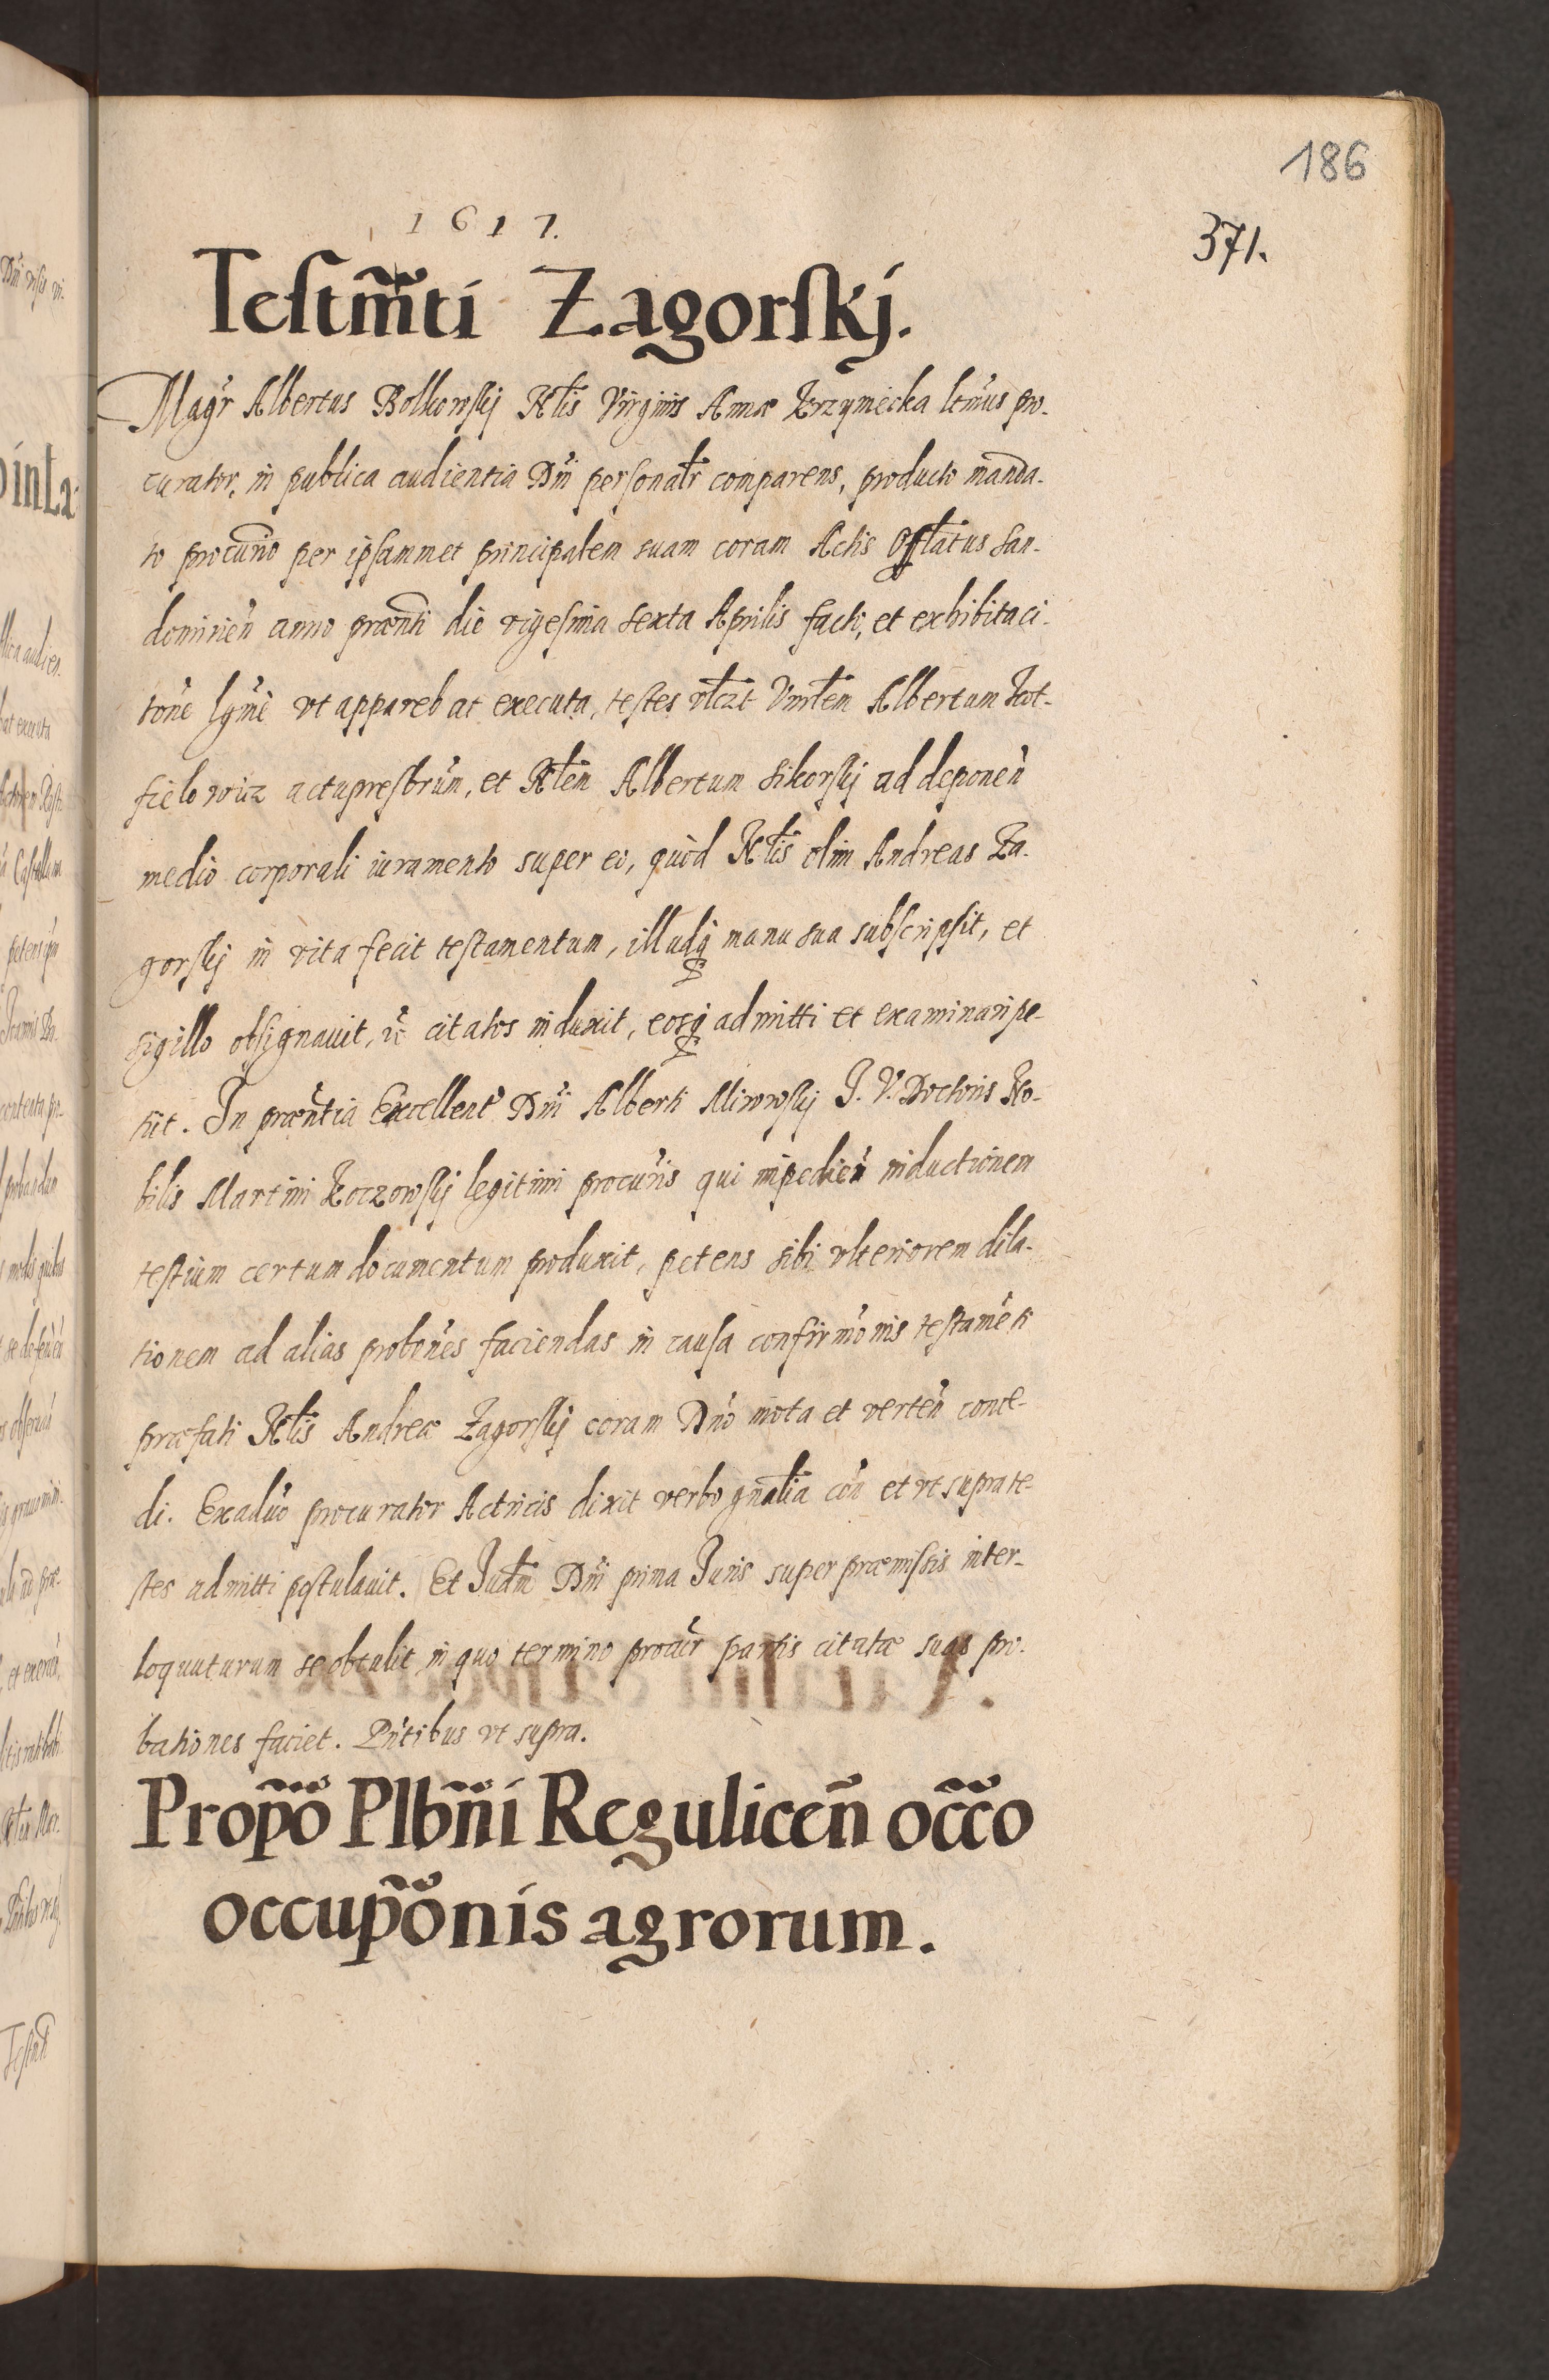 186
1617.
371.
Testm̃ti Zagorskj.
Magr̃ Albertus Bolkowskj Nl̃is Virginis Annæ Krzynecka ltm̃us pro-
curator, in publica audientia Dñi personalr̃ comparens, producto manda-
to procurio per ipsammet principalem suam coram Actis Offl̃atus San-
domirien̄ anno præn̄ti die vigesima sexta Aprilis facti, et exhibita ci-
tone lgmē vt apparebat executa, testes vl̃czt Vnrl̃em Albertum Kot-
fielowicz actu presbrūm, et Nl̃em Albertum Sikorskj ad deponen̄
medio corporali iuramento super eo, quòd Nl̃is olim Andreas Za-
gorskj in vita fecit testamentum, illudq̃ manu sua subscripsit, et
sigillo obsignauit, vc̃ citatos induxit, eosq̃ admitti et examinari pe-
tiit. In præn̄tia Excellent̃ Dñi Alberti Mirowskj J. V. Doctoris No-
bilis Martini Koczowskj legitimi procuris qui impedien̄ inductionem
testium certum documentum produxit, petens sibi vlteriorem dila-
tionem ad alias probōnes faciendas in causa confirmōnis testamēti
præfati Nl̃is Andreæ Zagorskj coram Dn̄o mota et verten̄ conce-
di. Ex aduo procurator Actricis dixit verbo gñalia con̄ et vt supra te-
stes admitti postulauit. Et Judm̃ Dñi prima Juris super præmissis inter-
loquuturum se obtulit in quo termino procur̃ partis citatæ suas pro-
bationes faciet. Pñtibus vt supra.
Prop̃o Plbñi Regulicen̄ occ̃o
occup̃onis agrorum.